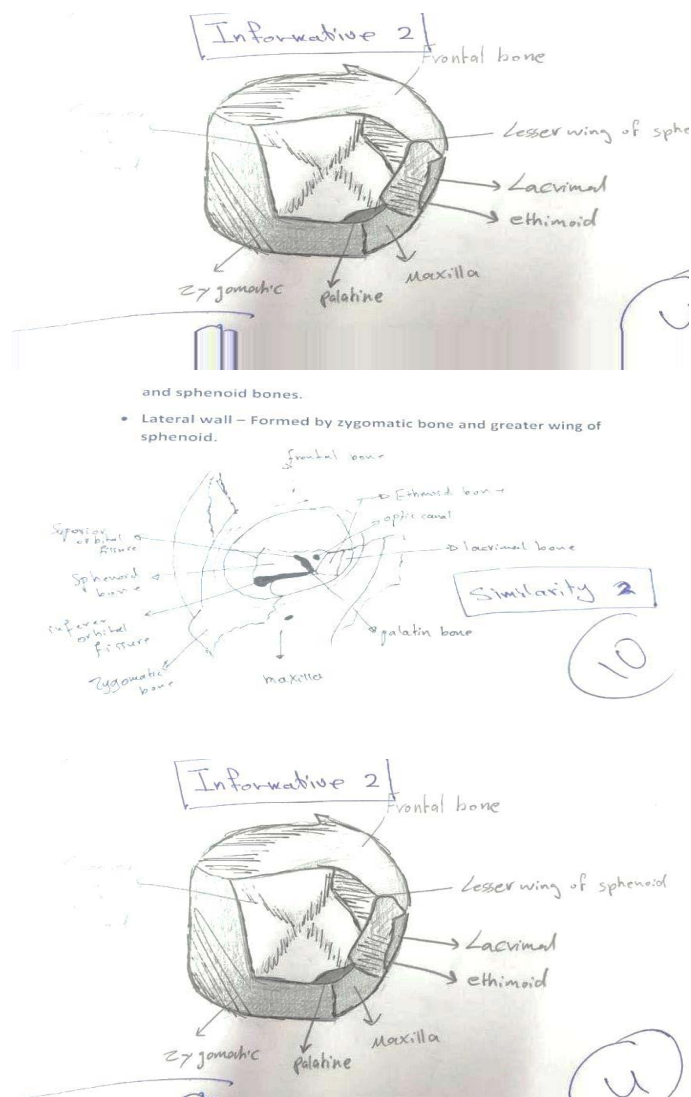 Informative 2
Frontal bone
Lesser wing of sphe
Lacrimal
ethimoid
Maxilla
Zygomatic
Palatine
and sphenoid bones.
• Lateral wall – Formed by zygomatic bone and greater wing of
sphenoid.
frontal bone
Ethmoid bone
optic canal
lacrimal bone
Superior
orbital
fissure
Sphenoid
bone
orbital
fissure
Zygomatic
bone
maxilla
palatin bone
Similarity 2
10
Informative 2
Frontal bone
Lesser wing of sphenoid
Lacrimal
ethimoid
Maxilla
Zygomatic
Palatine